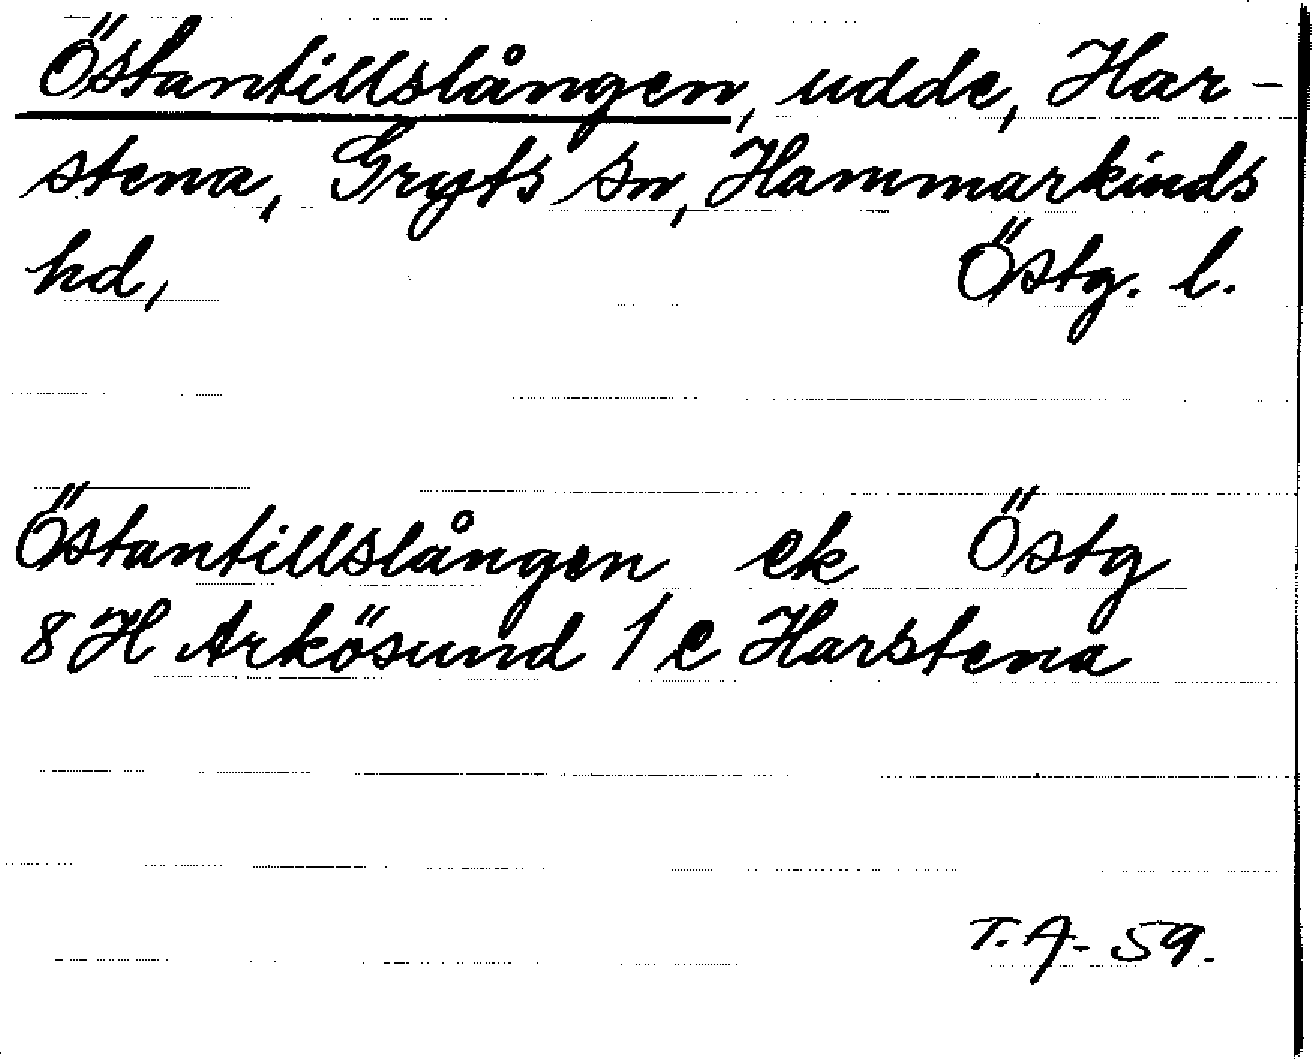 Östantillslången, udde, Har-
stena, Gryts sn, Hammarkinds
hd, Östg. l.
Östantillslången ek Östg
8 H Arkösund 1 e Harstena
T. A- 59.